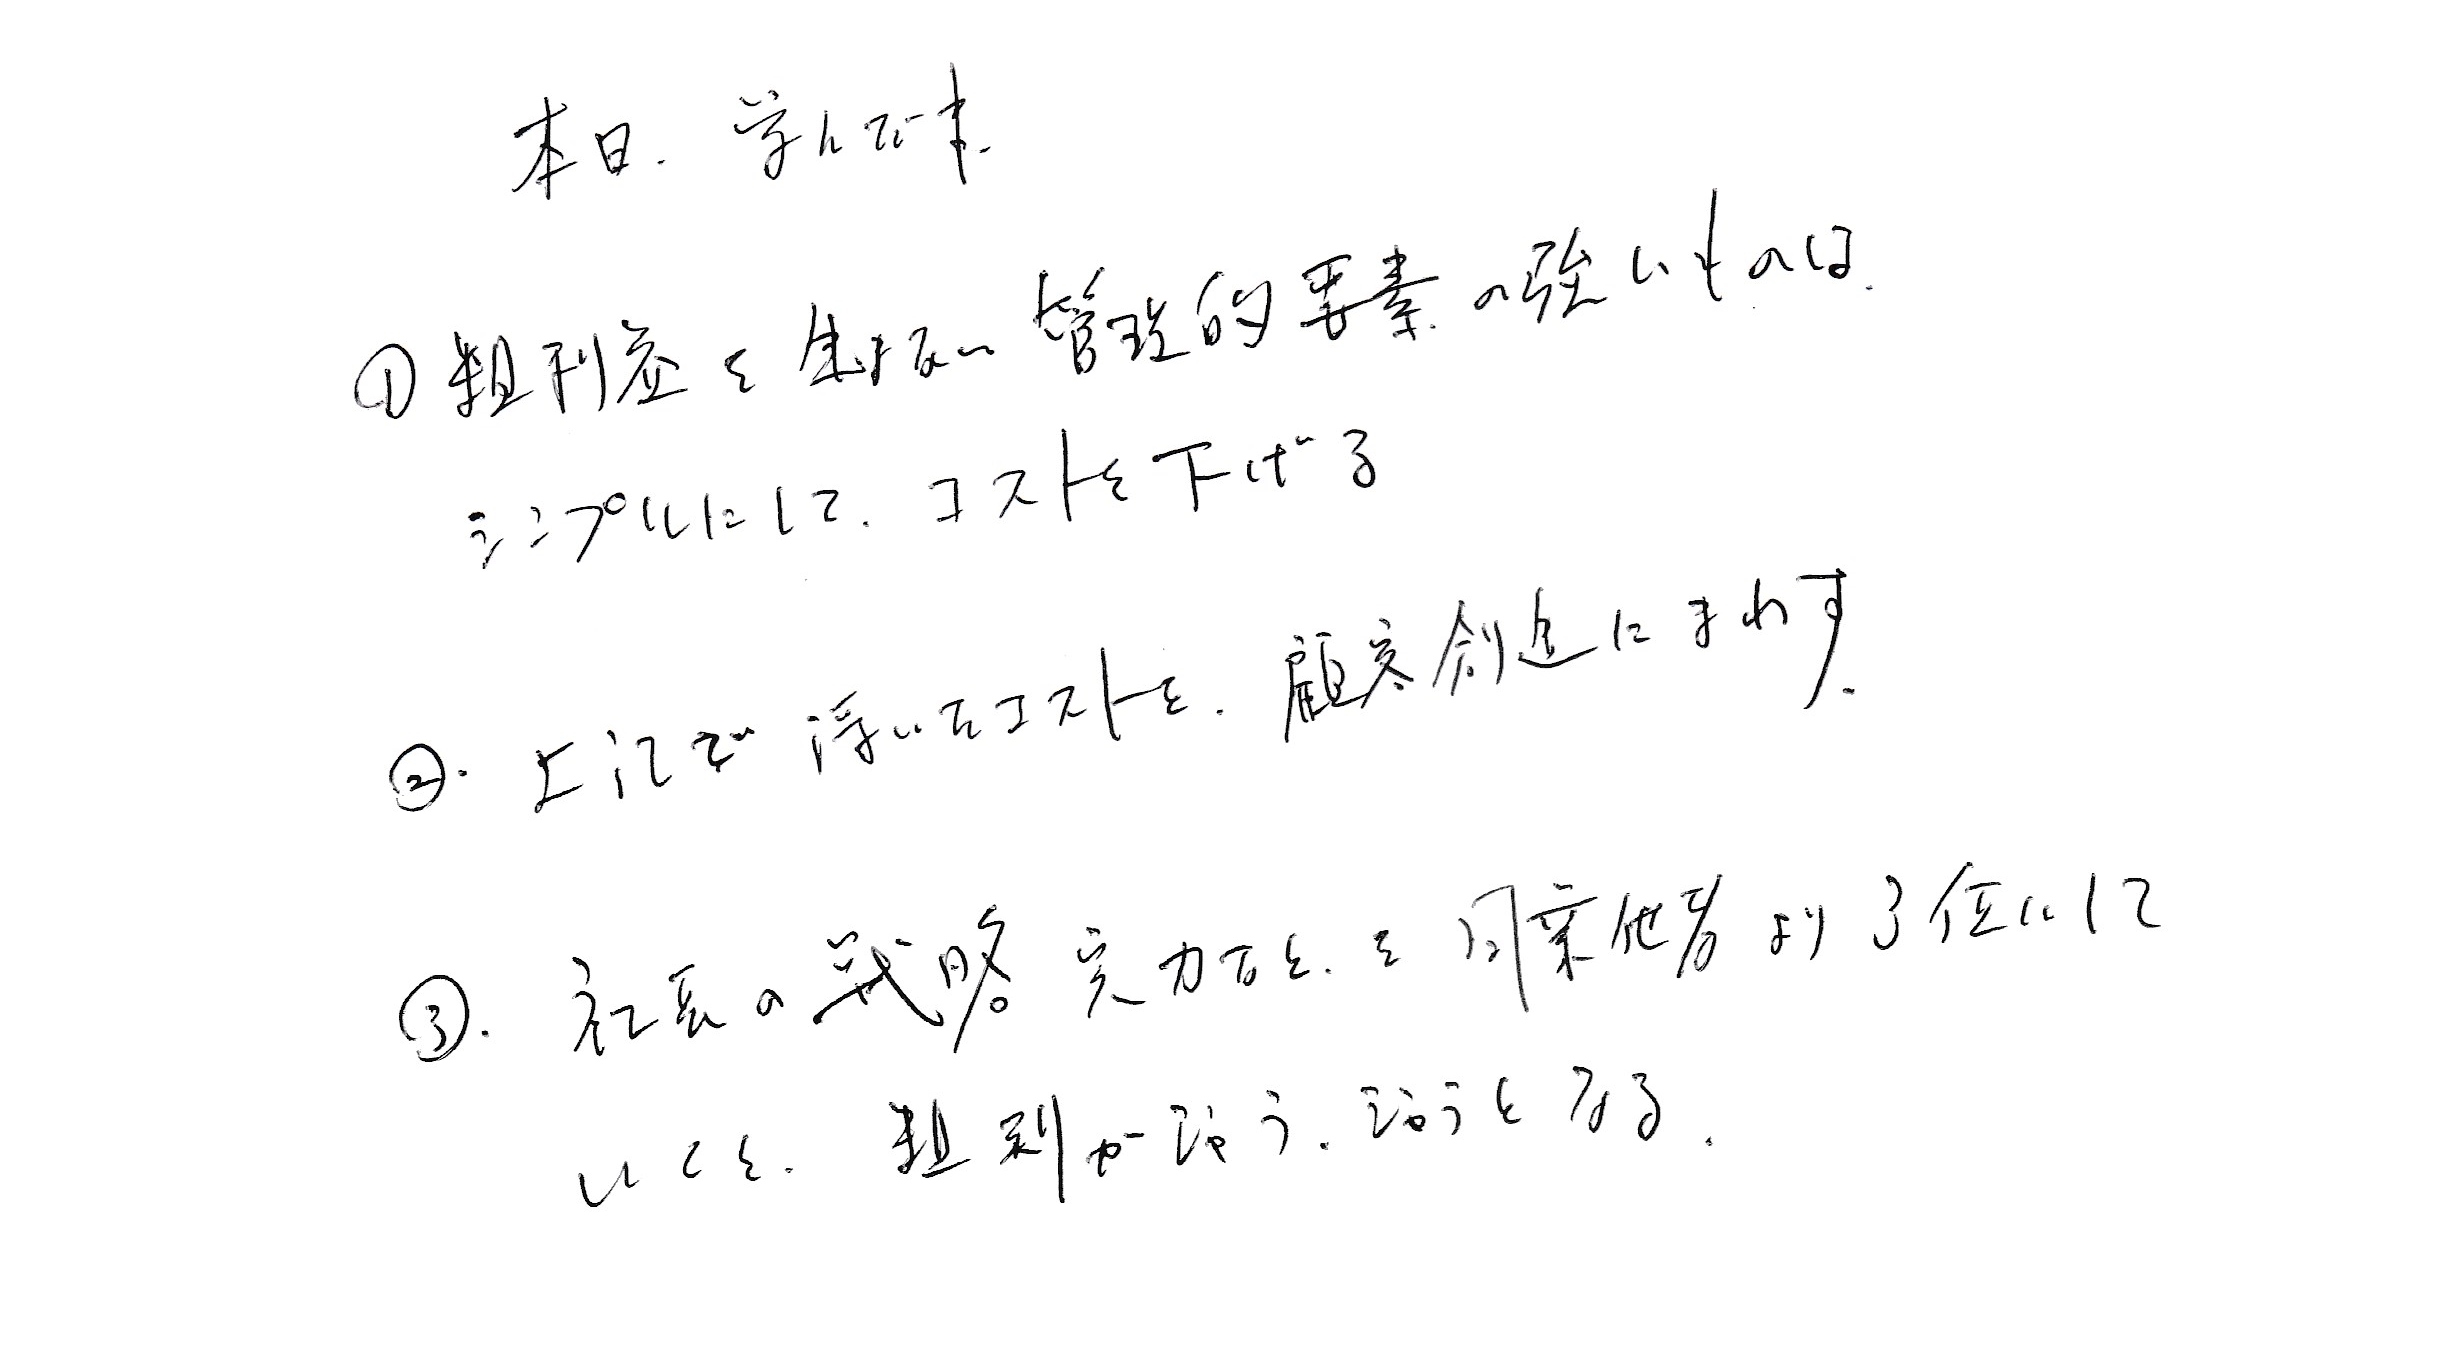 本日. 学んだ
①粗利益を生まない管理的要素の強いものは.
シンプルにして. コストを下げる
②. 上記で浮いたコストを. 顧客創造にまわす.
③. 社長の戦略実力を 同業他者より3倍にして
いくと. 粗利が となる.